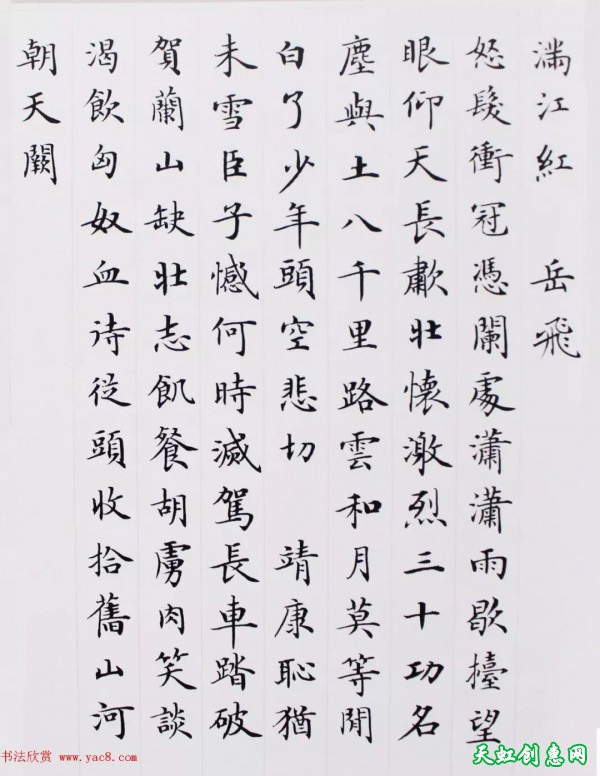 滿江紅 岳飛
怒髮衝冠憑闌處瀟瀟雨歇擡望
眼仰天長歗壯懷激烈三十功名
塵與土八千里路雲和月莫等閒
白了少年頭空悲切 靖康恥猶
未雪臣子憾何時滅駕長車踏破
賀蘭山缺壯志飢餐胡虜肉笑談
渴飲匈奴血待從頭收拾舊山河
朝天闕
书法欣赏 www.yac8.com
天虹创意网